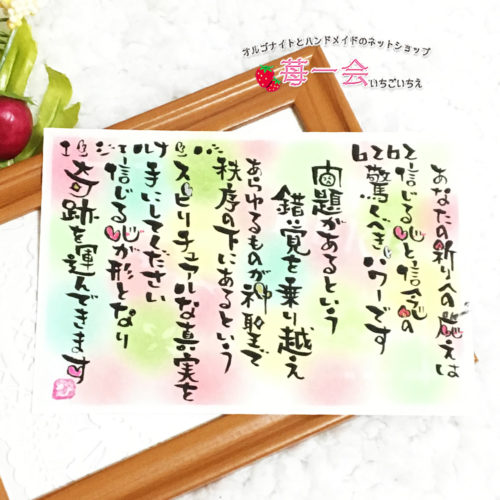 オルゴナイトとハンドメイドのネットショップ
苺一会 いちごいちえ
あなたの祈りへの応えは
信じる心と信念の
驚くべきパワーです
問題があるという
錯覚を乗り越え
あらゆるものが神聖で
秩序の下にあるという
スピリチュアルな真実を
手にしてください
信じる心が形となり
奇跡を運んできます